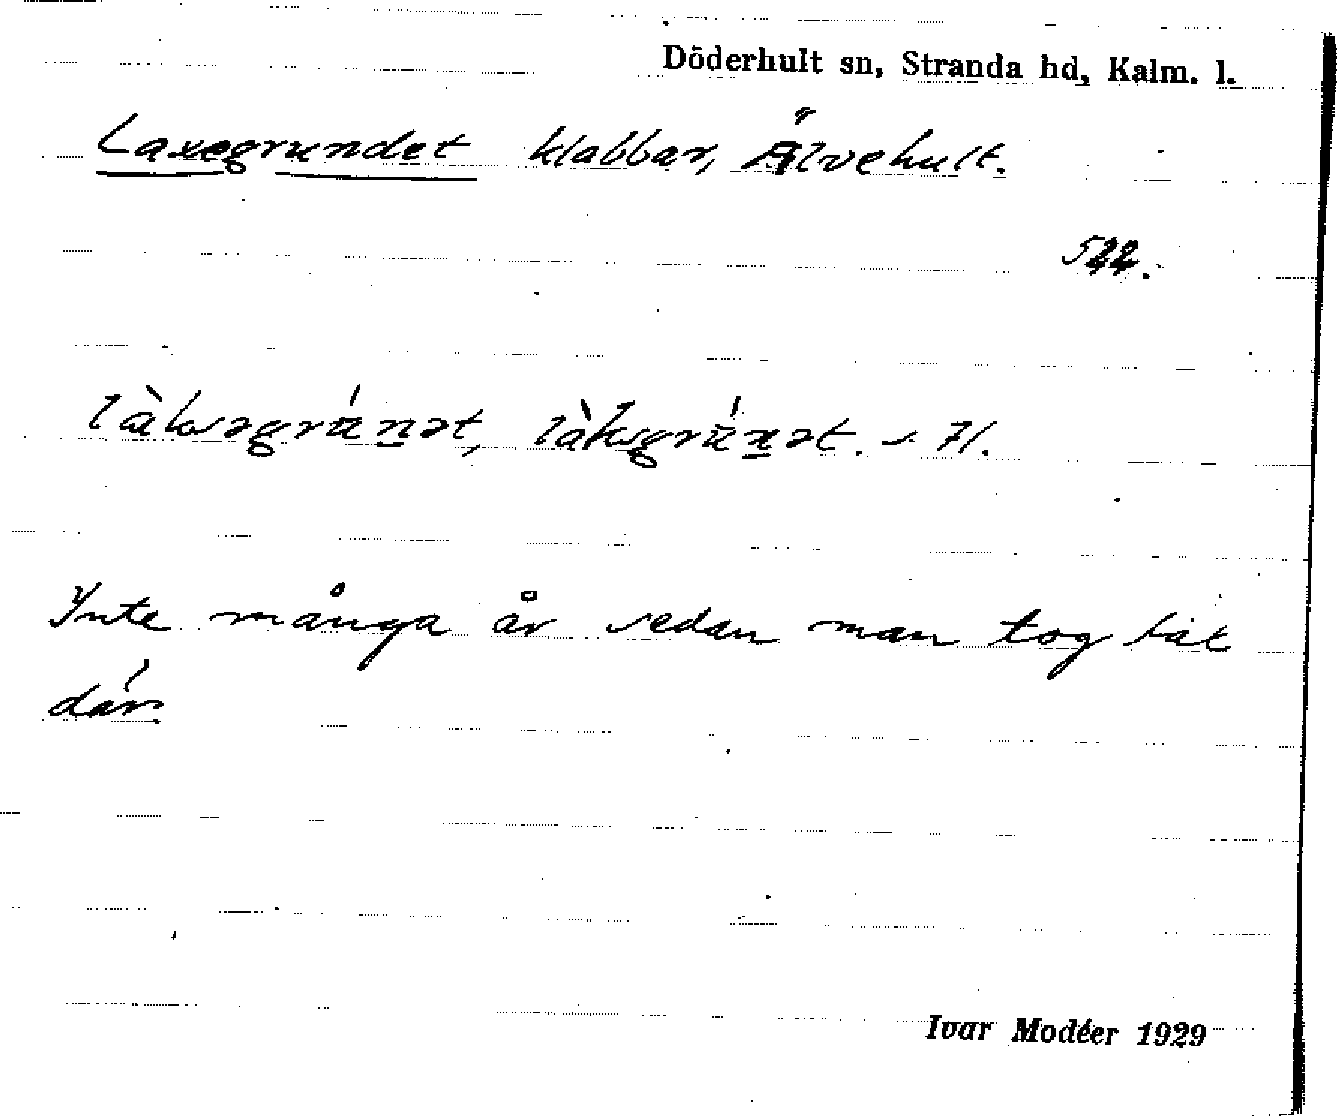 Döderhult sn, Stranda hd, Kalm. l.
Laxegrundet klabbar, Älvehult.
522.
làksəgrúnət, làksgrúnət. s. 71.
Inte många år sedan man tog lax
där.
Ivar Modéer 1929